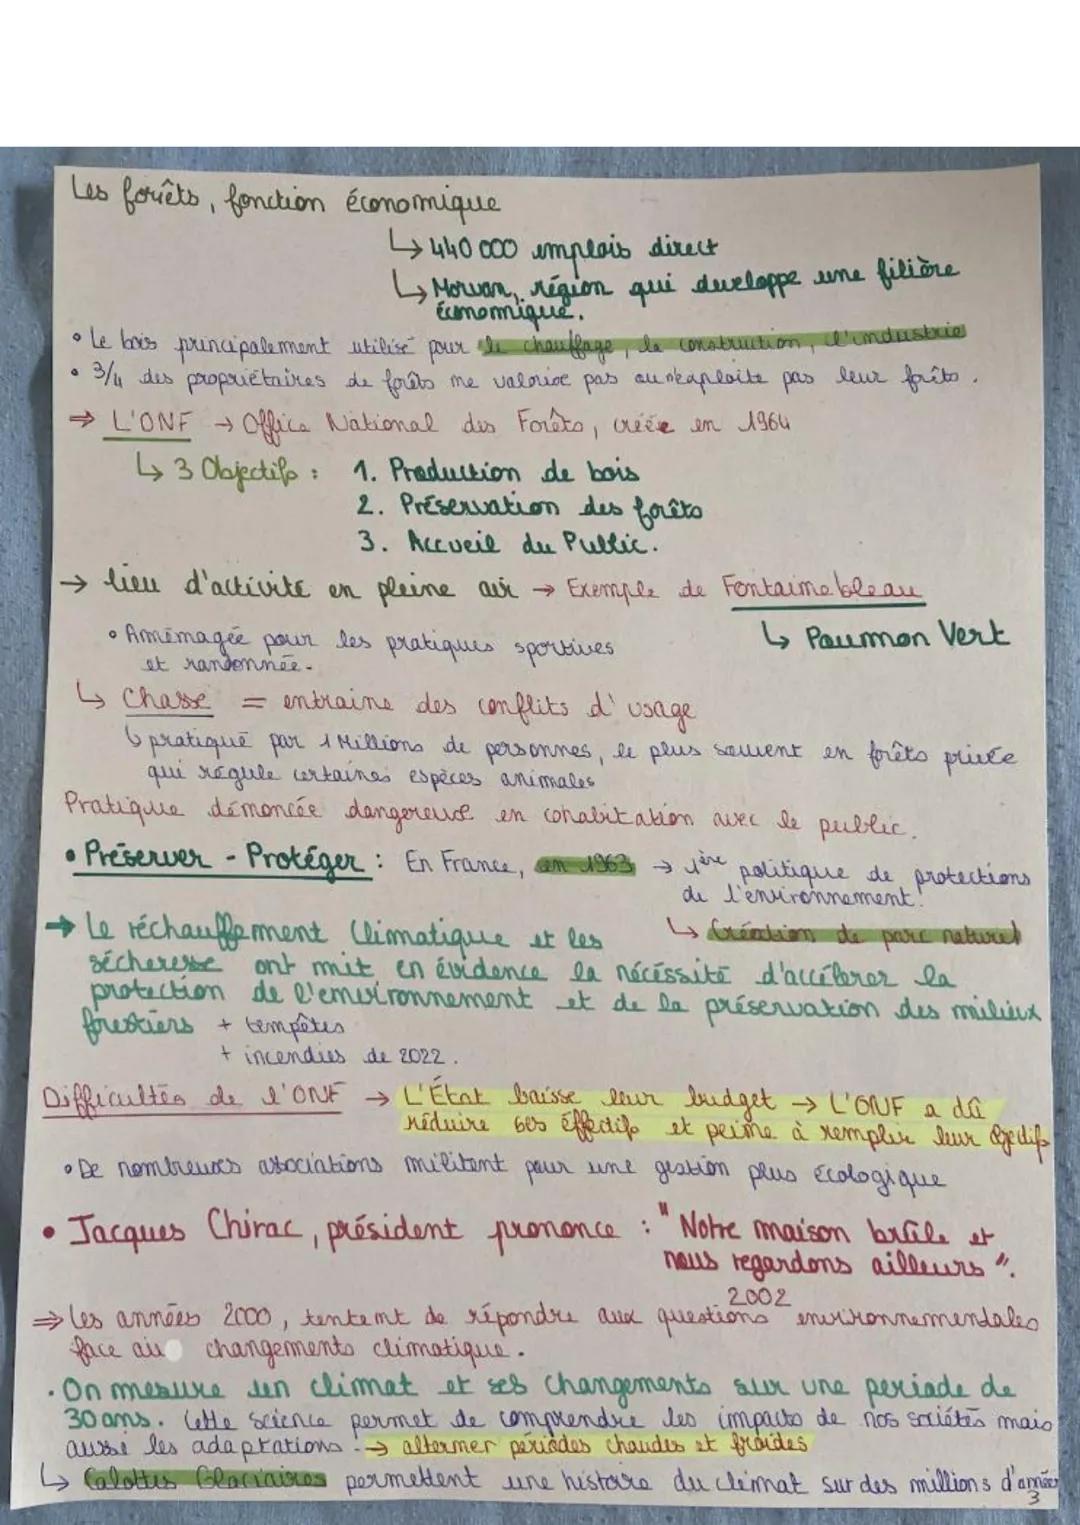 Les foriêts, fonction économique
↳ 440 000 emplois direct
↳ Morvan, région qui developpe une filière
économique.
• Le bois principalement utilisé pour le chauffage, la construction, l'industrie
• 3/4 des propriétaires de forêts ne valorise pas ou n'exploite pas leur forêts.
⇒ L'ONF → Office National des Forêts, créée en 1964
↳ 3 Objectifs : 1. Production de bois
2. Préservation des forêts
3. Accueil du Public.
→ lieu d'activité en pleine air → Exemple de Fontainebleau
↳ Poumon Vert
• Aménagée pour les pratiques sportives
et randonnée.
↳ Chasse = entraine des conflits d'usage
↳ pratiqué par 1 Millions de personnes, le plus souvent en forêts privée
qui régule certaines espèces animales
Pratique dénoncée dangereuse en cohabitation avec le public.
• Préserver - Protéger : En France, en 1963 → 1ère politique de protections
de l'environnement.
↳ Création de parc naturel
→ Le réchauffement Climatique et les
sécheresse ont mit en évidence la nécéssité d'accélérer la
protection de l'environnement et de la préservation des milieux
forestiers + tempêtes
+ incendies de 2022.
Difficultés de l'ONF → L'État baisse leur budget → L'ONF a dû
réduire ses éffectifs et peine à remplir leur Objectifs
• De nombreuses associations militent pour une gestion plus écologique
• Jacques Chirac, président prononce : "Notre maison brûle et
nous regardons ailleurs".
2002
⇒ Les années 2000, tentent de répondre aux questions environnementales
face au changements climatique.
• On mesure un climat et ses changements sur une periode de
30 ans. Cette science permet de comprendre les impacts de nos sociétés mais
aussi les adaptations. → alterner périodes chaudes et froides
↳ Calottes Glaciaires permettent une histoire du climat sur des millions d'années
3